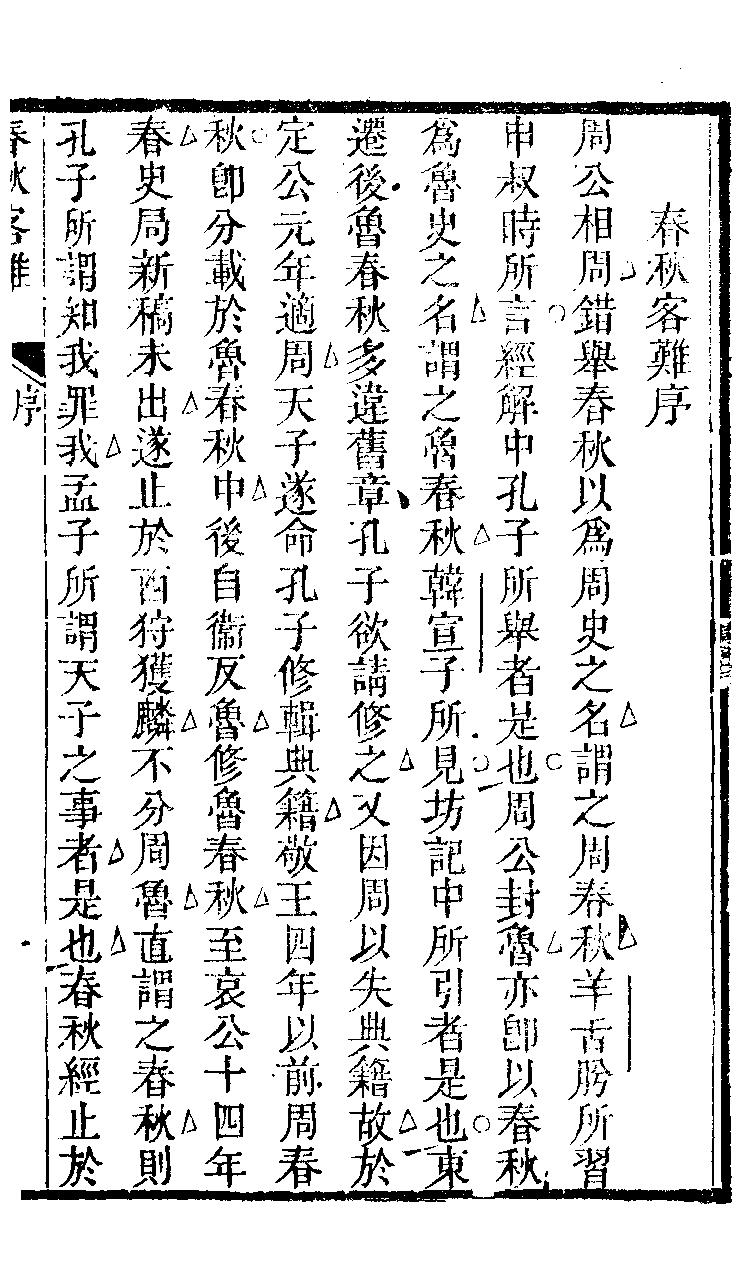 春秋客難序
周公相周錯舉春秋以爲周史之名謂之周春秋羊舌肹所習
申叔時所言經解中孔子所舉者是也周公封魯亦卽以春秋
爲魯史之名謂之魯春秋韓宣子所見坊記中所引者是也東
遷後魯春秋多違舊章孔子欲請修之又因周以失典籍故於
定公元年適周天子遂命孔子修輯典籍敬王四年以前周春
秋卽分載於魯春秋中後自衞反魯修魯春秋至哀公十四年
春史局新稿未出遂止於西狩獲麟不分周魯直謂之春秋則
孔子所謂知我罪我孟子所謂天子之事者是也春秋經止於
春秋客難
序